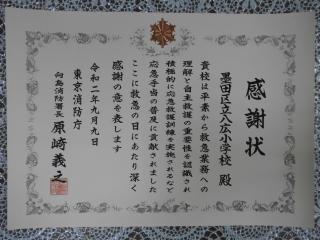 感謝状
墨田区立八広小学校 殿
貴校は平素から救急業務への
理解と自主救護の重要性を認識され
積極的に応急救護訓練を実施されるなど
応急手当の普及に貢献されました
ここに救急の日にあたり深く
感謝の意を表します
令和二年九月九日
東京消防庁
向島消防署長 原﨑義之